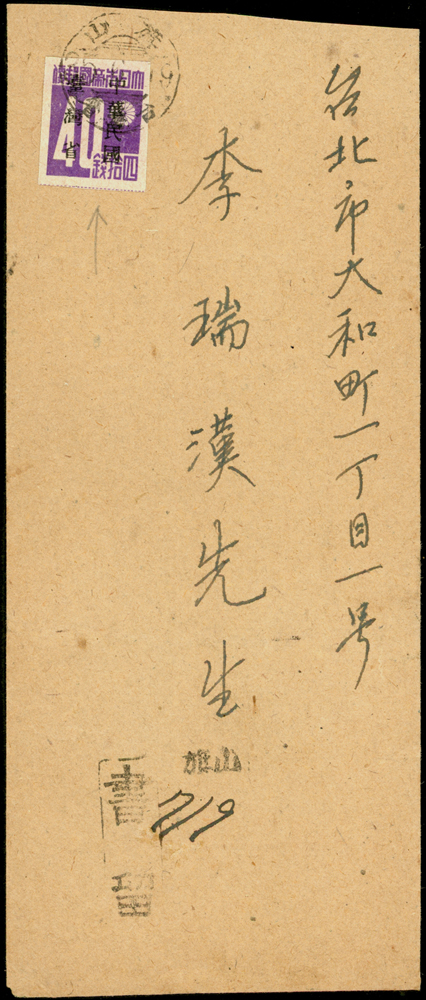 台北市大和町一丁目一号
李瑞漢先生
大日本帝國郵便
中華民國
臺灣省
40
四拾錢
旗山
719
書留